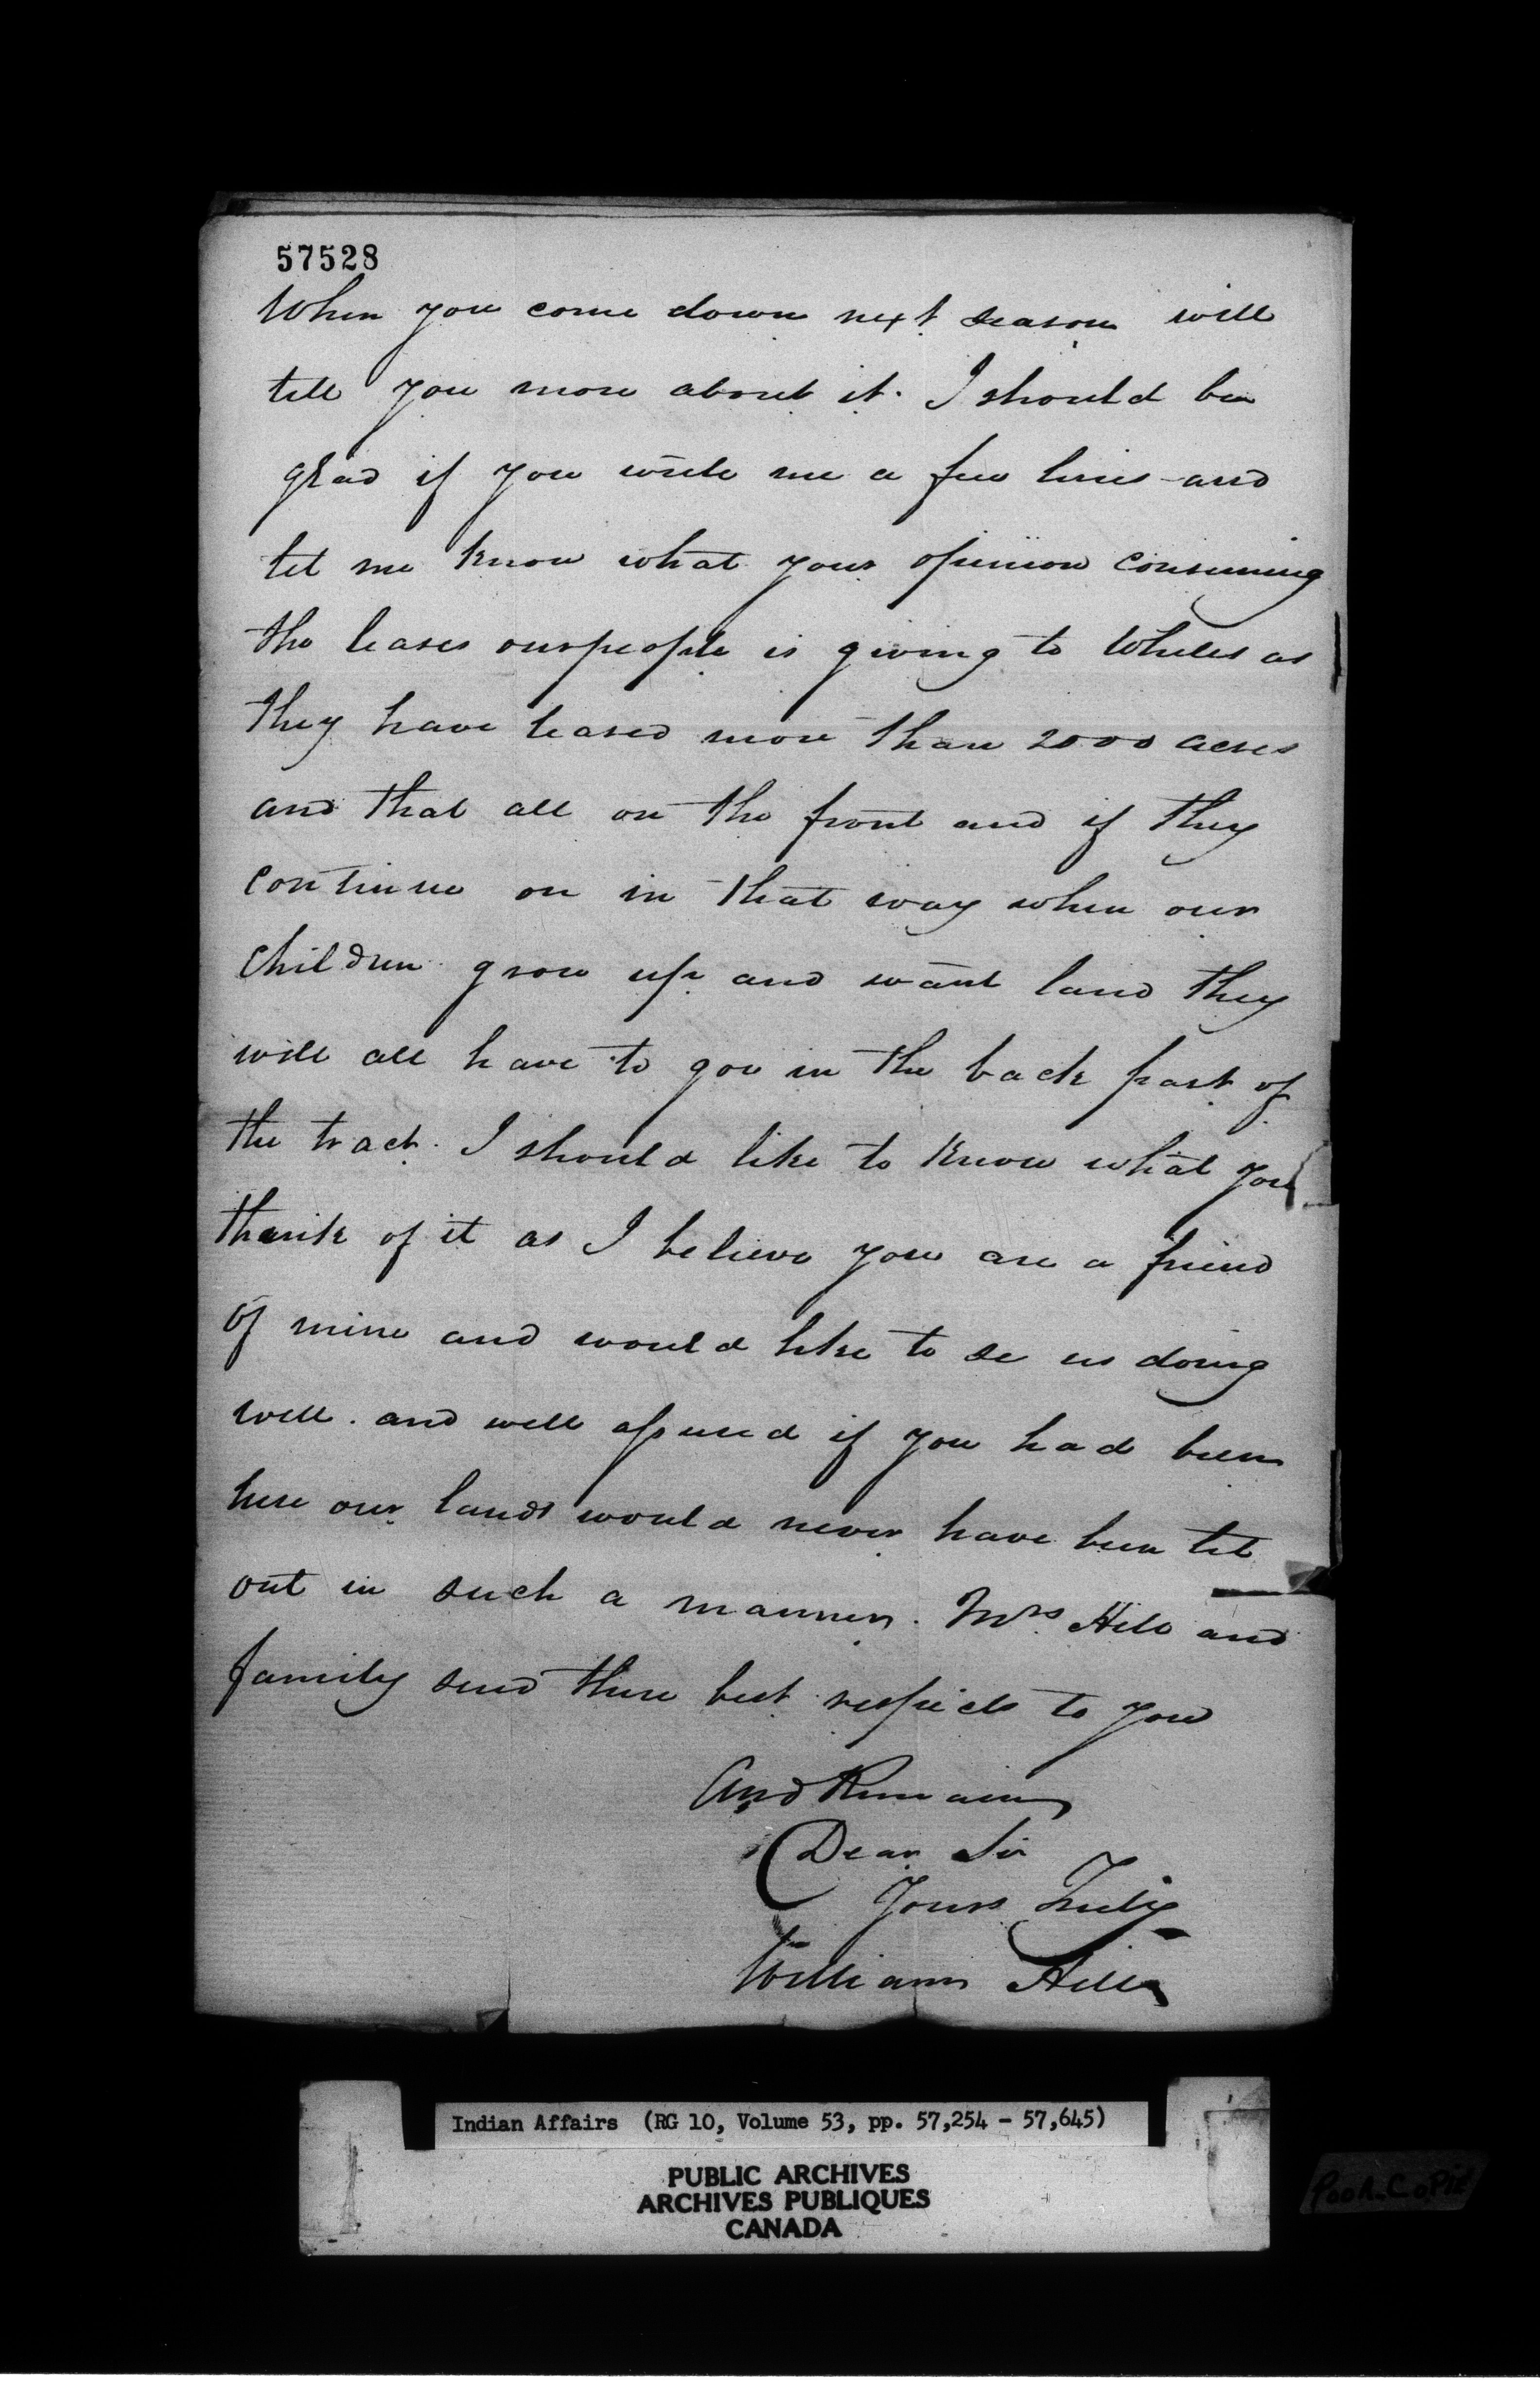 57528
When you come down next season will
tell you more about it. I should be
glad if you write me a few lines and
let me know what your opinion conserning
the leases our people is giving to Whites as
they have leased more than 2000 acres
and that all on the front and if they
continue on in that way when our
Children grow up and want land they
will all have to gou in the back part of
the tract. I should like to know what you
think of it as I believe you are a friend
of mine and would like to se us doing
well. and well assured if you had been
here our lands would never have been let
out in such a manner. Mrs Hill and
family send there best respects to you
And Remain
Dear Sir
Yours Truly
William Hill
Indian Affairs (RG 10, Volume 53, pp. 57,254 - 57,645)
PUBLIC ARCHIVES
ARCHIVES PUBLIQUES
CANADA
Poor Copie